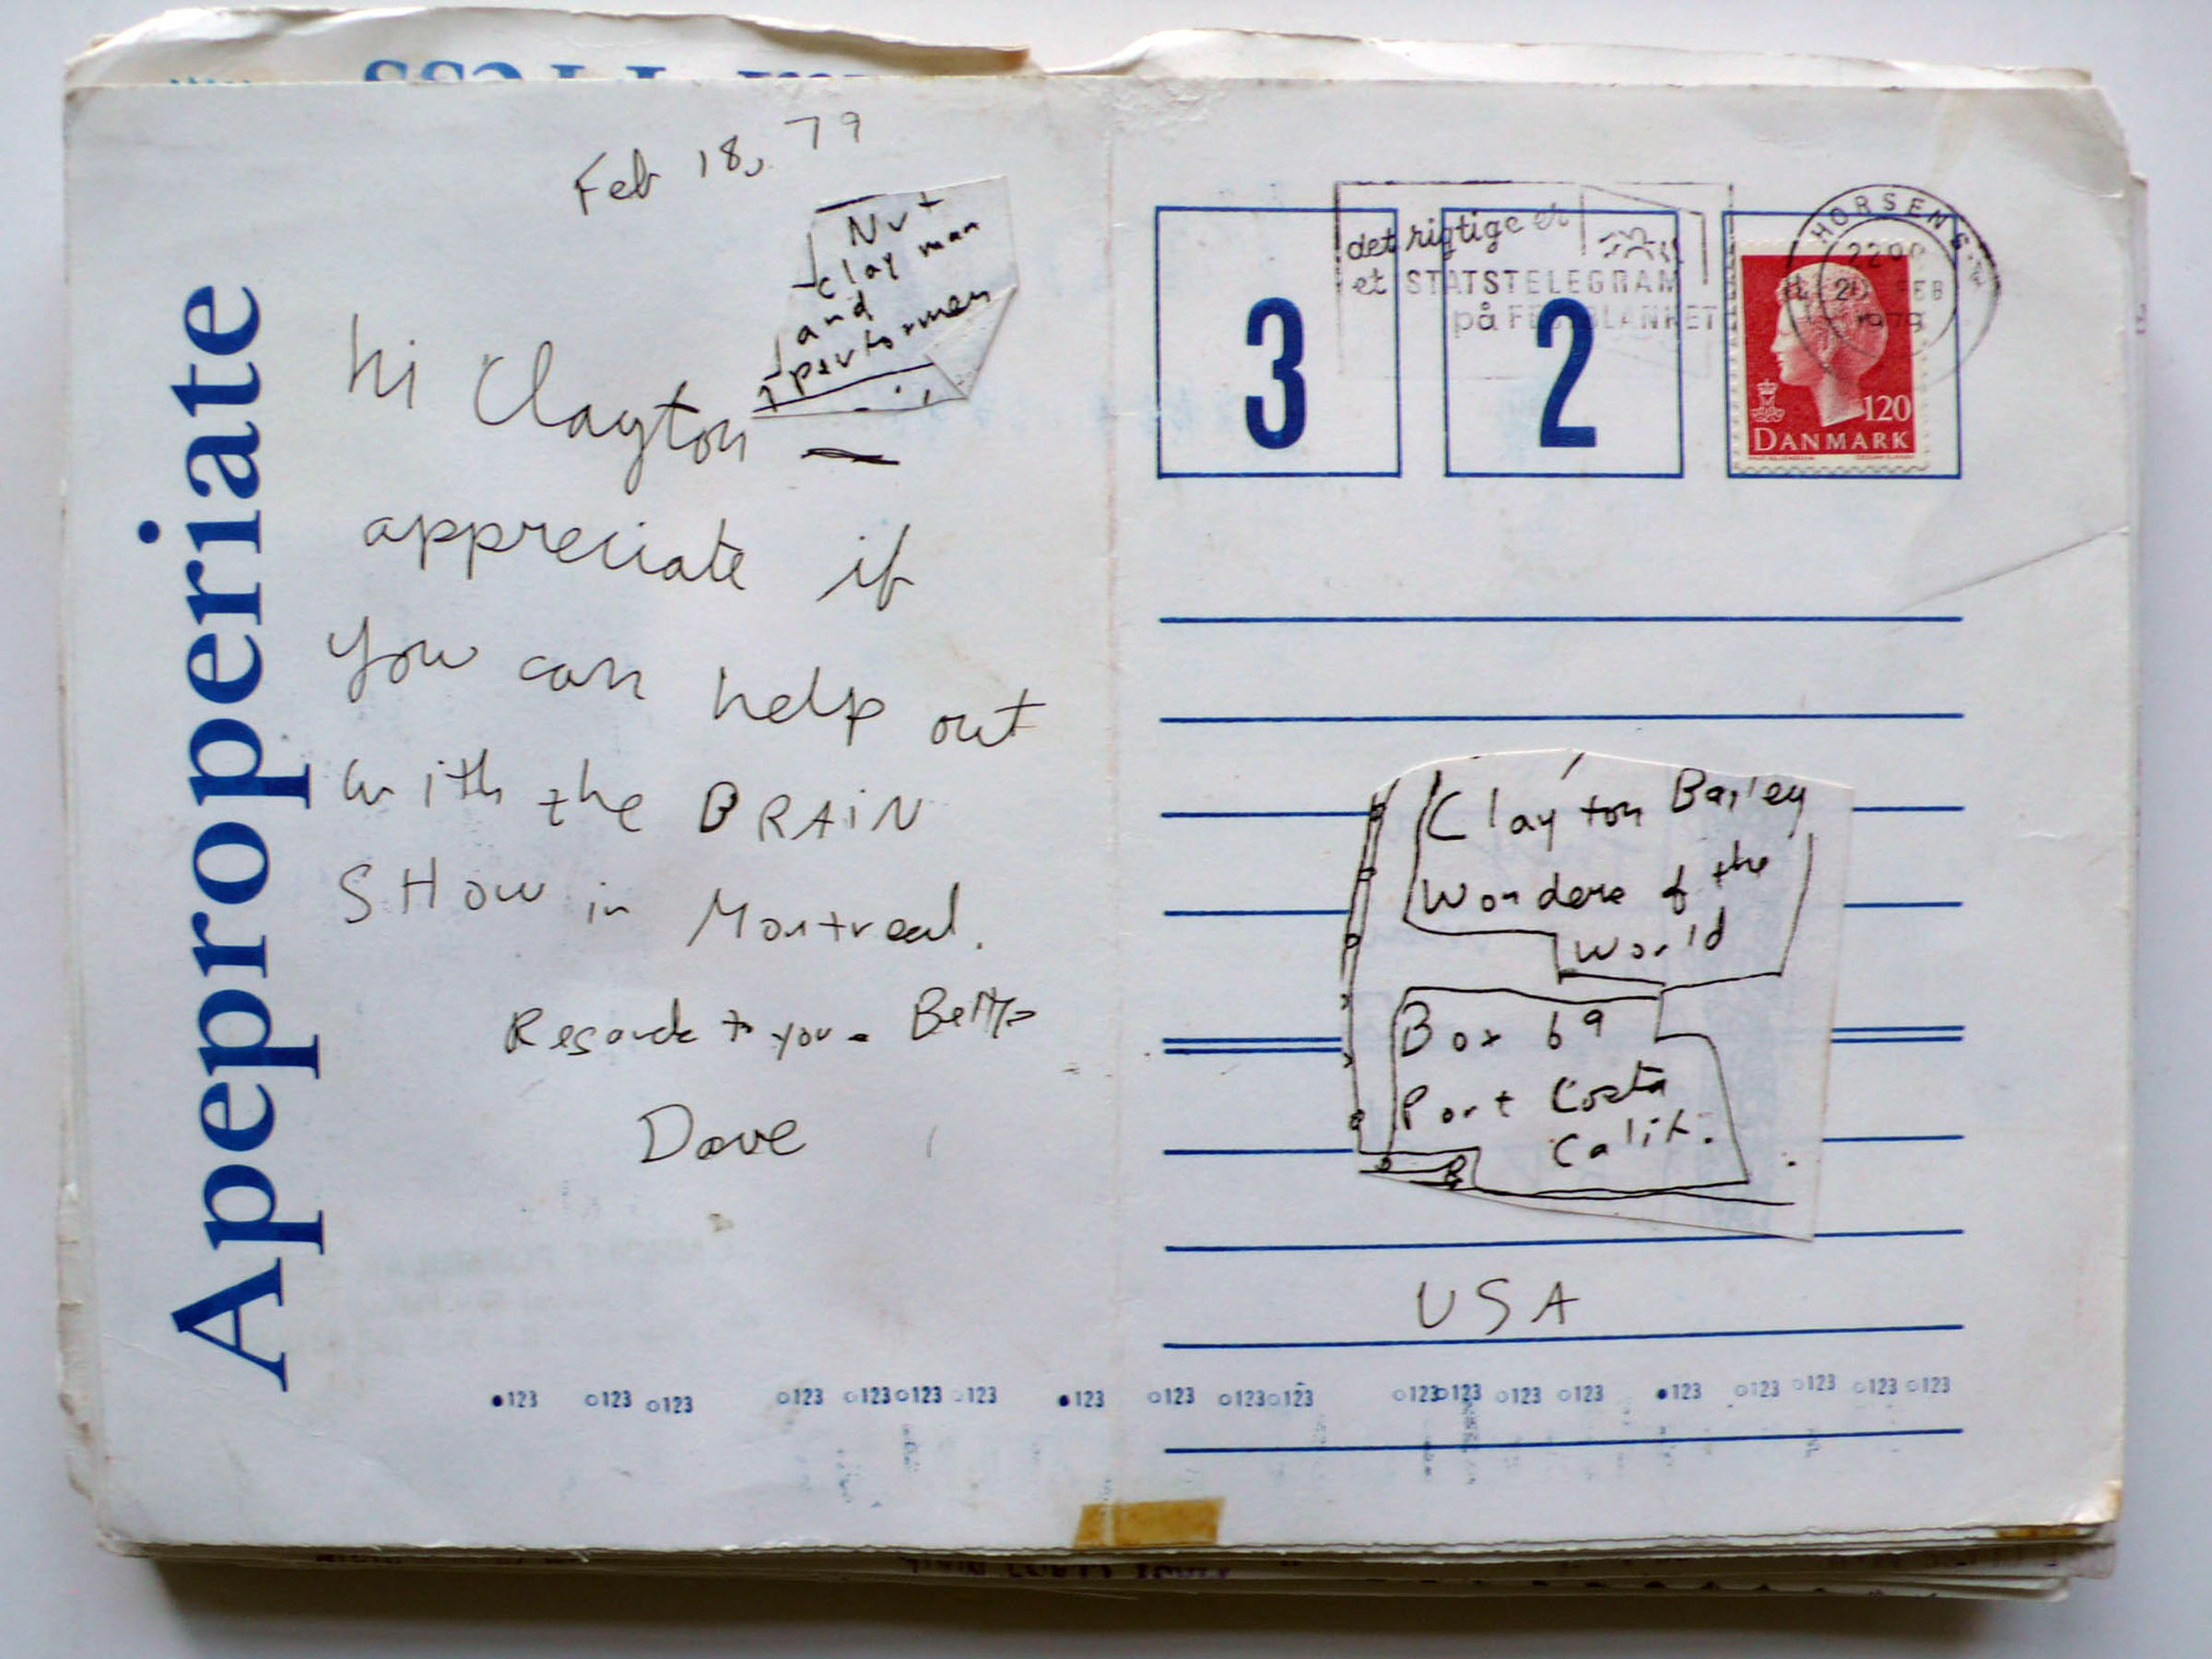 Apeproperiate
Feb 18, 79
Nut
clay man
and
performer
hi Clayton —
appreciate if
you can help out
with the BRAiN
SHOW in Montreal.
Regards to you
Dave
det rigtige er
et STATSTELEGRAM
på
HORSENS
20 FEB
1979
3
2
120
DANMARK
Clayton Bailey
Wonders of the
World
Box 69
Port Costa
Calif.
USA
●123 ○123 ○123 ○123 ○123 ○123 ○123 ●123 ○123 ○123 ○123 ○123 ○123 ○123 ○123 ●123 ○123 ○123 ○123 ○123